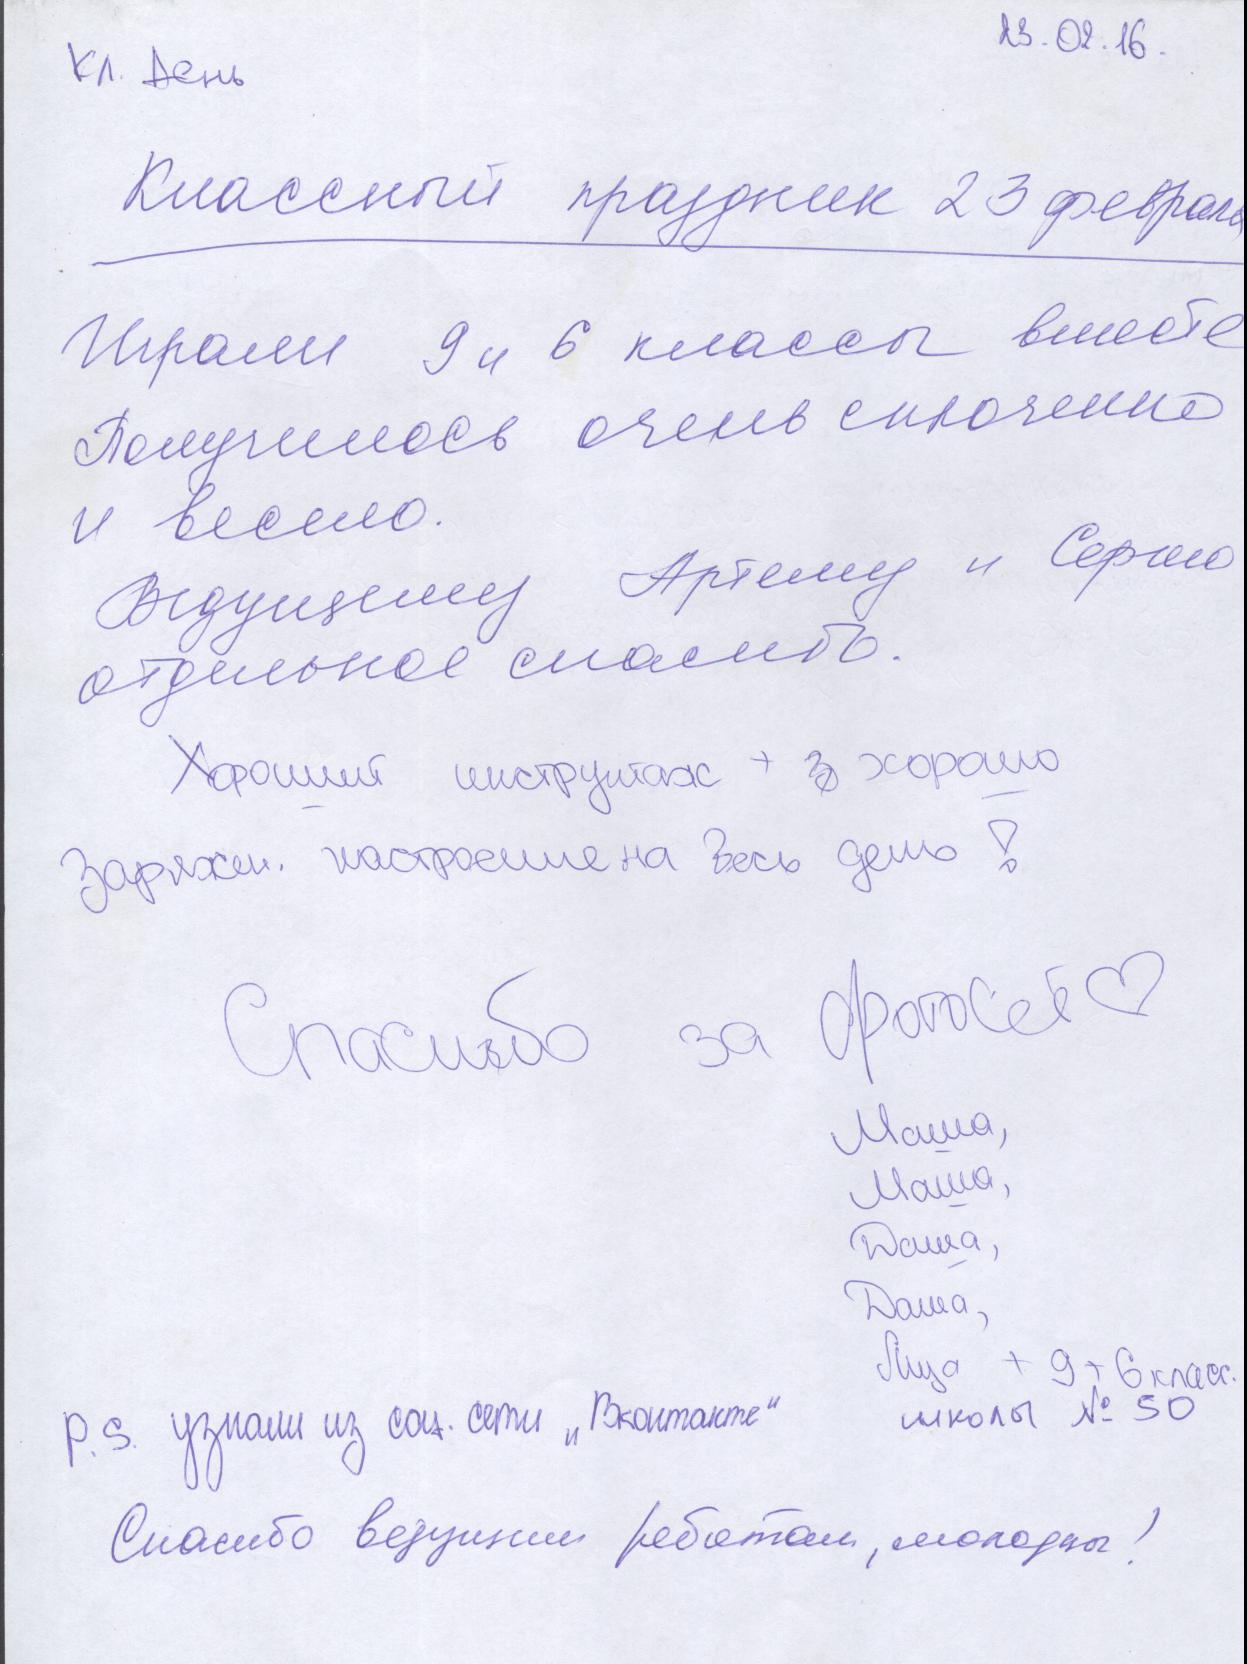 23.02.16.
Кл. День
Классный праздник 23 февраля
Играли 9 и 6 классы вместе
Получилось очень сплоченно
и весело.
Ведущему Артему и Сергею
отдельное спасибо.
Хороший инструктаж + хорошо
Заряжен. настроение на весь день!
Спасибо за фотосет♡
Маша,
Маша,
Даша,
Даша,
Лиза + 9 + 6 класс.
школы № 50
P.S. узнали из соц. сети „Вконтакте“
Спасибо ведущим ребятам, молодцы!